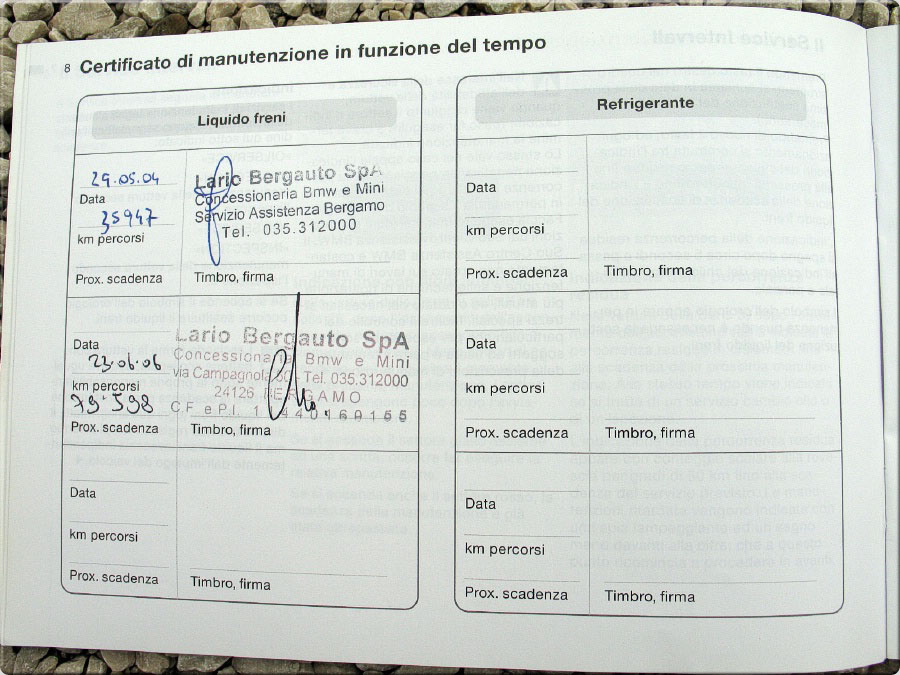 8 Certificato di manutenzione in funzione del tempo
Liquido freni
29.05.04
Data
35947
km percorsi
Prox. scadenza
Lario Bergauto SpA
Concessionaria Bmw e Mini
Servizio Assistenza Bergamo
Tel. 035.312000
Timbro, firma
Data
23.06.06
km percorsi
79.598
Prox. scadenza
Lario Bergauto SpA
Concessiona ia Bmw e Mini
via Campagnola Tel. 035.312000
24126 BERGAMO
C.F. e P.I.
Timbro, firma
Data
km percorsi
Prox. scadenza
Timbro, firma
Refrigerante
Data
km percorsi
Prox. scadenza
Timbro, firma
Data
km percorsi
Prox. scadenza
Timbro, firma
Data
km percorsi
Prox. scadenza
Timbro, firma